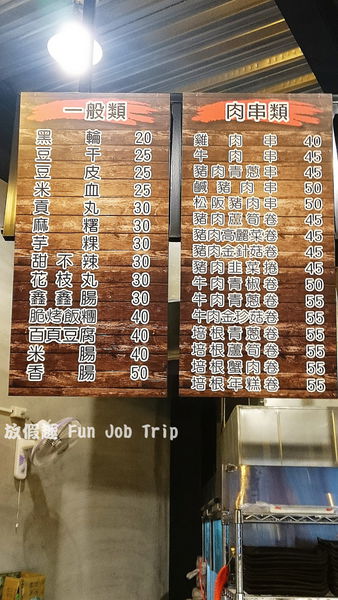 一般類
黑輪 20
豆干 25
豆皮 25
米血 25
貢丸 30
麻糬 30
芋粿 30
甜不辣 30
花枝丸 30
鑫鑫腸 30
脆烤飯糰 40
百頁豆腐 40
米腸 40
香腸 50
肉串類
雞肉串 40
牛肉串 45
豬肉青蔥串 45
鹹豬肉串 50
松阪豬肉串 50
豬肉蘆筍卷 45
豬肉高麗菜卷 45
豬肉金針菇卷 45
豬肉韭菜捲 45
牛肉青椒卷 50
牛肉青蔥卷 55
牛肉金珍菇卷 55
培根青蔥卷 55
培根蘆筍卷 55
培根蟹肉卷 55
培根年糕卷 55
Fun Job Trip